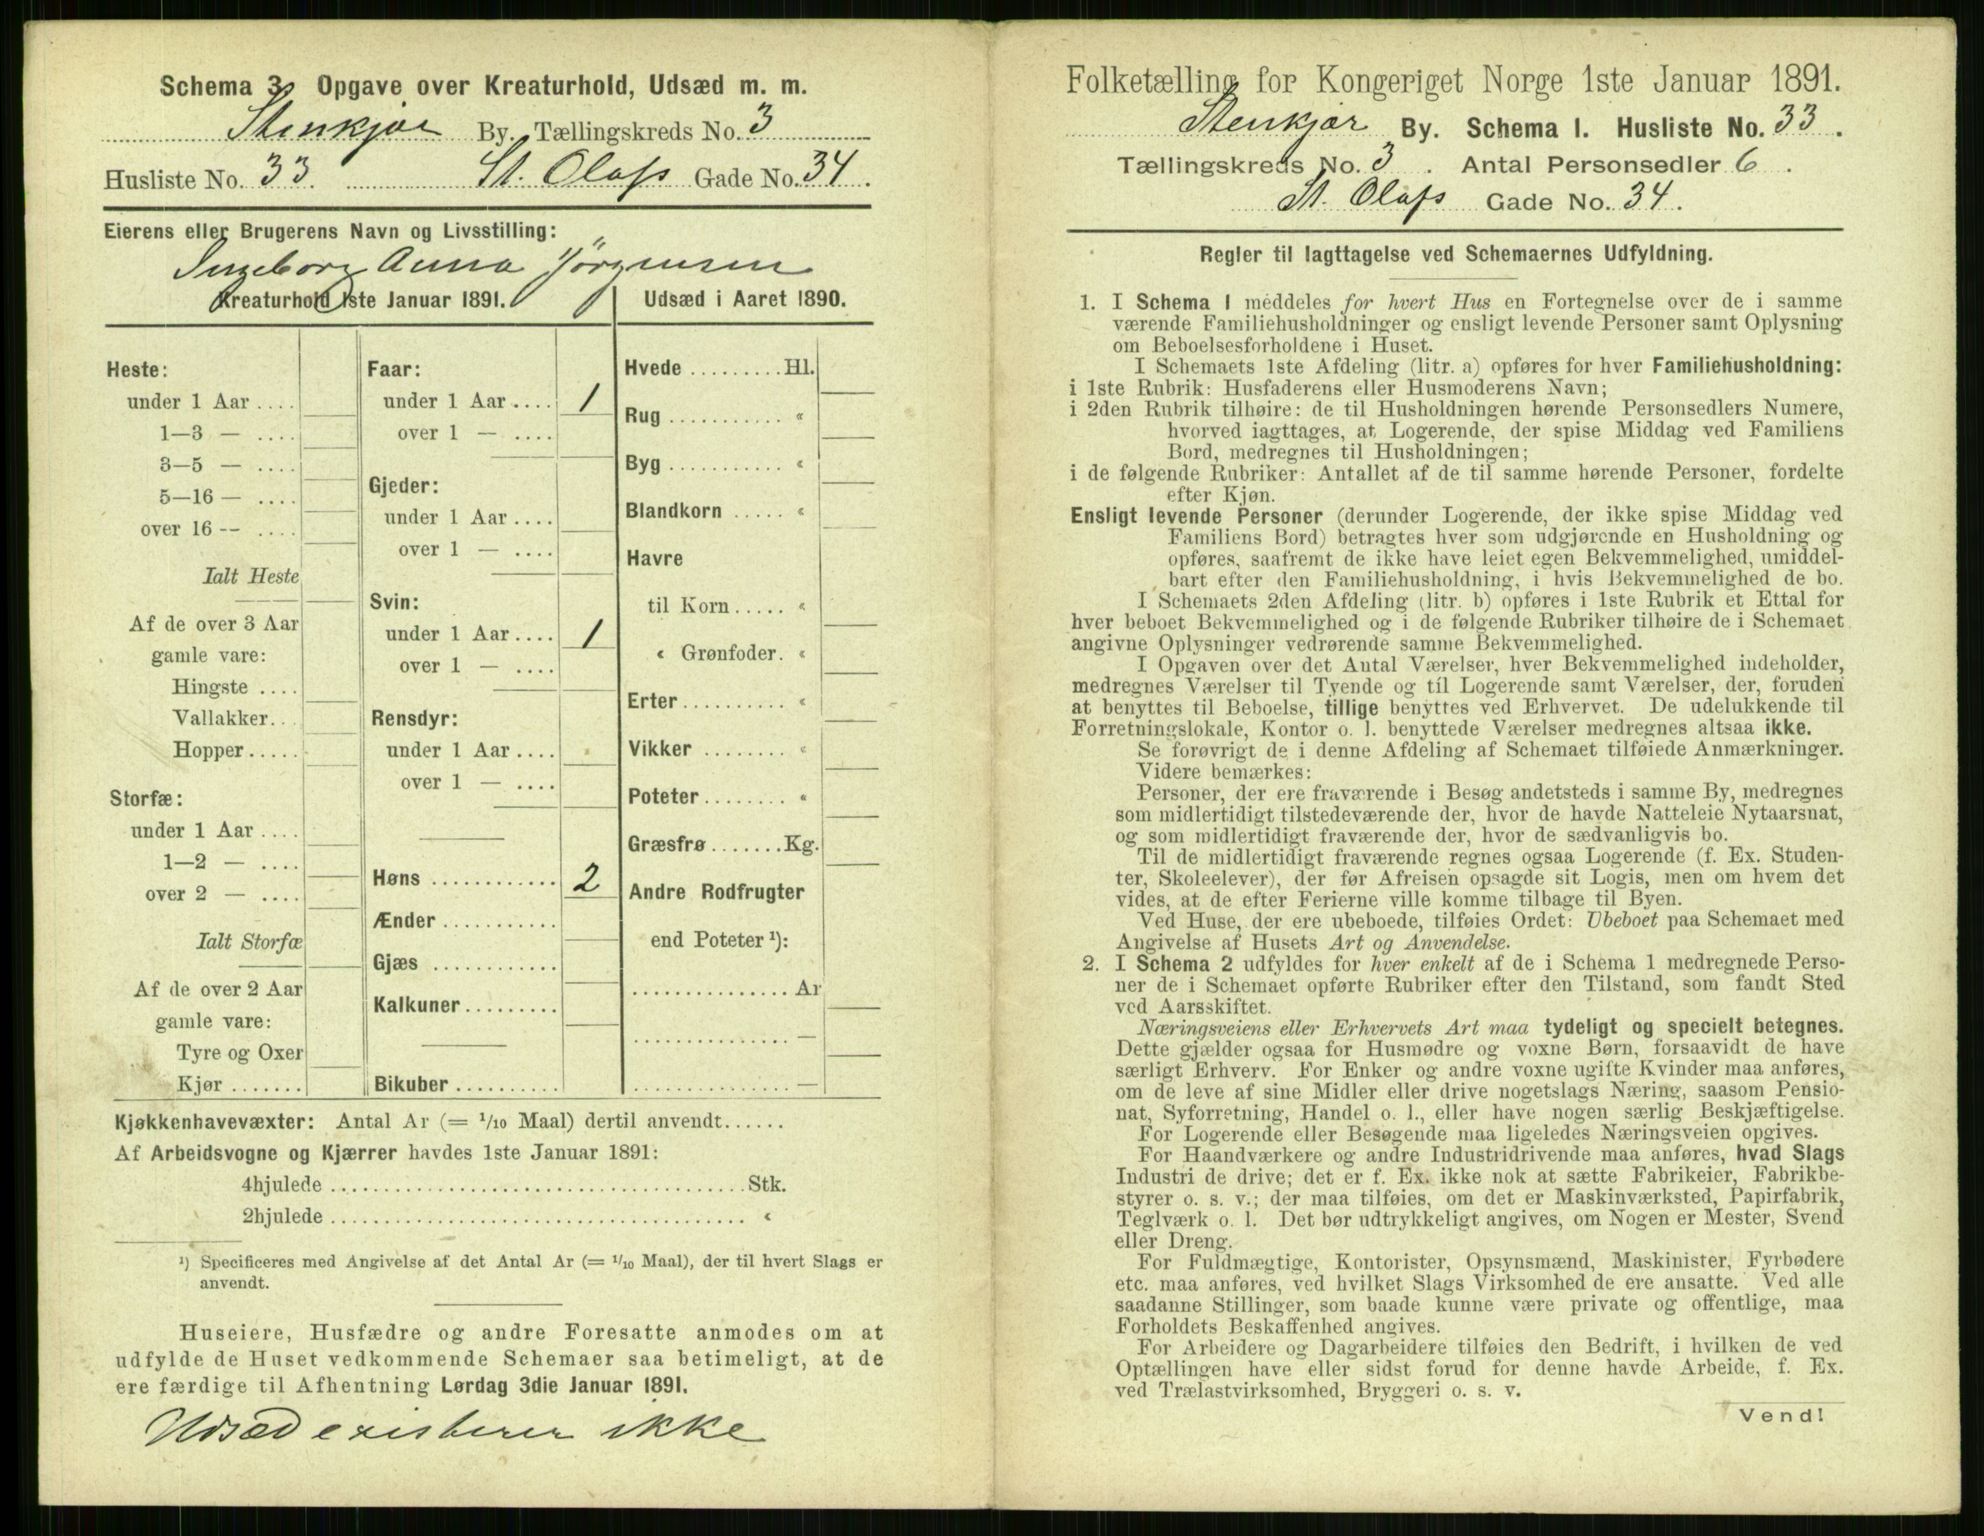 Schema 3. Opgave over Kreaturhold, Udsæd m. m.
Stenkjær By. Tællingskreds No. 3
Husliste No. 33. St. Olafs Gade No. 34.
Eierens eller Brugerens Navn og Livsstilling:
Ingeborg Anna Jörgensen
Kreaturhold 1ste Januar 1891.
Heste:
under 1 Aar ....
1—3 — ....
3—5 — ....
5—16 — ....
over 16 -- ....
Ialt Heste
Af de over 3 Aar
gamle vare:
Hingste ....
Vallakker...
Hopper.....
Storfæ:
under 1 Aar ....
1—2 — ....
over 2 — ....
Ialt Storfæ
Af de over 2 Aar
gamle vare:
Tyre og Oxer
Kjør .......
Faar:
under 1 Aar .... 1
over 1 — ....
Gjeder:
under 1 Aar ....
over 1 — ....
Svin:
under 1 Aar .... 1
over 1 — ....
Rensdyr:
under 1 Aar ....
over 1 — ....
Høns ............ 2
Ænder ...........
Gjæs ............
Kalkuner.........
Bikuber..........
Udsæd i Aaret 1890.
Hvede .........Hl.
Rug ........... «
Byg ........... «
Blandkorn ..... «
Havre
til Korn..... «
« Grønfoder. «
Erter.......... «
Vikker ........ «
Poteter........ «
Græsfrø.......Kg.
Andre Rodfrugter
end Poteter ¹):
...............Ar
............... —
............... —
Kjøkkenhavevæxter: Antal Ar (= 1/10 Maal) dertil anvendt......
Af Arbeidsvogne og Kjærrer havdes 1ste Januar 1891:
4hjulede ......................................Stk.
2hjulede ...................................... «
¹) Specificeres med Angivelse af det Antal Ar (= 1/10 Maal), der til hvert Slags er
anvendt.
Huseiere, Husfædre og andre Foresatte anmodes om at
udfylde de Huset vedkommende Schemaer saa betimeligt, at de
ere færdige til Afhentning Lørdag 3die Januar 1891.
Udsæd existerer ikke
Folketælling for Kongeriget Norge 1ste Januar 1891.
Stenkjær By. Schema I. Husliste No. 33.
Tællingskreds No. 3. Antal Personsedler 6.
St. Olafs Gade No. 34.
Regler til Iagttagelse ved Schemaernes Udfyldning.
1. I Schema 1 meddeles for hvert Hus en Fortegnelse over de i samme
værende Familiehusholdninger og ensligt levende Personer samt Oplysning
om Beboelsesforholdene i Huset.
I Schemaets 1ste Afdeling (litr. a) opføres for hver Familiehusholdning:
i 1ste Rubrik: Husfaderens eller Husmoderens Navn;
i 2den Rubrik tilhøire: de til Husholdningen hørende Personsedlers Numere,
hvorved iagttages, at Logerende, der spise Middag ved Familiens
Bord, medregnes til Husholdningen;
i de følgende Rubriker: Antallet af de til samme hørende Personer, fordelte
efter Kjøn.
Ensligt levende Personer (derunder Logerende, der ikke spise Middag ved
Familiens Bord) betragtes hver som udgjørende en Husholdning og
opføres, saafremt de ikke have leiet egen Bekvemmelighed, umiddel-
bart efter den Familiehusholdning, i hvis Bekvemmelighed de bo.
I Schemaets 2den Afdeling (litr. b) opføres i 1ste Rubrik et Ettal for
hver beboet Bekvemmelighed og i de følgende Rubriker tilhøire de i Schemaet
angivne Oplysninger vedrørende samme Bekvemmelighed.
I Opgaven over det Antal Værelser, hver Bekvemmelighed indeholder,
medregnes Værelser til Tyende og til Logerende samt Værelser, der, foruden
at benyttes til Beboelse, tillige benyttes ved Erhvervet. De udelukkende til
Forretningslokale, Kontor o. l. benyttede Værelser medregnes altsaa ikke.
Se forøvrigt de i denne Afdeling af Schemaet tilføiede Anmærkninger.
Videre bemærkes:
Personer, der ere fraværende i Besøg andetsteds i samme By, medregnes
som midlertidigt tilstedeværende der, hvor de havde Natteleie Nytaarsnat,
og som midlertidigt fraværende der, hvor de sædvanligvis bo.
Til de midlertidigt fraværende regnes ogsaa Logerende (f. Ex. Studen-
ter, Skoleelever), der før Afreisen opsagde sit Logis, men om hvem det
vides, at de efter Ferierne ville komme tilbage til Byen.
Ved Huse, der ere ubeboede, tilføies Ordet: Ubeboet paa Schemaet med
Angivelse af Husets Art og Anvendelse.
2. I Schema 2 udfyldes for hver enkelt af de i Schema 1 medregnede Perso-
ner de i Schemaet opførte Rubriker efter den Tilstand, som fandt Sted
ved Aarsskiftet.
Næringsveiens eller Erhvervets Art maa tydeligt og specielt betegnes.
Dette gjælder ogsaa for Husmødre og voxne Børn, forsaavidt de have
særligt Erhverv. For Enker og andre voxne ugifte Kvinder maa anføres,
om de leve af sine Midler eller drive nogetslags Næring, saasom Pensio-
nat, Syforretning, Handel o. l., eller have nogen særlig Beskjæftigelse.
For Logerende eller Besøgende maa ligeledes Næringsveien opgives.
For Haandværkere og andre Industridrivende maa anføres, hvad Slags
Industri de drive; det er f. Ex. ikke nok at sætte Fabrikeier, Fabrikbe-
styrer o. s. v.; der maa tilføies, om det er Maskinværksted, Papirfabrik,
Teglværk o. l. Det bør udtrykkeligt angives, om Nogen er Mester, Svend
eller Dreng.
For Fuldmægtige, Kontorister, Opsynsmænd, Maskinister, Fyrbødere
etc. maa anføres, ved hvilket Slags Virksomhed de ere ansatte. Ved alle
saadanne Stillinger, som baade kunne være private og offentlige, maa
Forholdets Beskaffenhed angives.
For Arbeidere og Dagarbeidere tilføies den Bedrift, i hvilken de ved
Optællingen have eller sidst forud for denne havde Arbeide, f. Ex.
ved Trælastvirksomhed, Bryggeri o. s. v.
Vend!